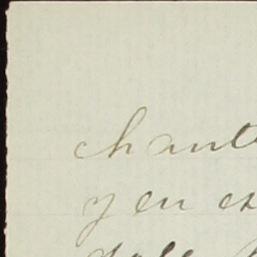 chant
yen ex